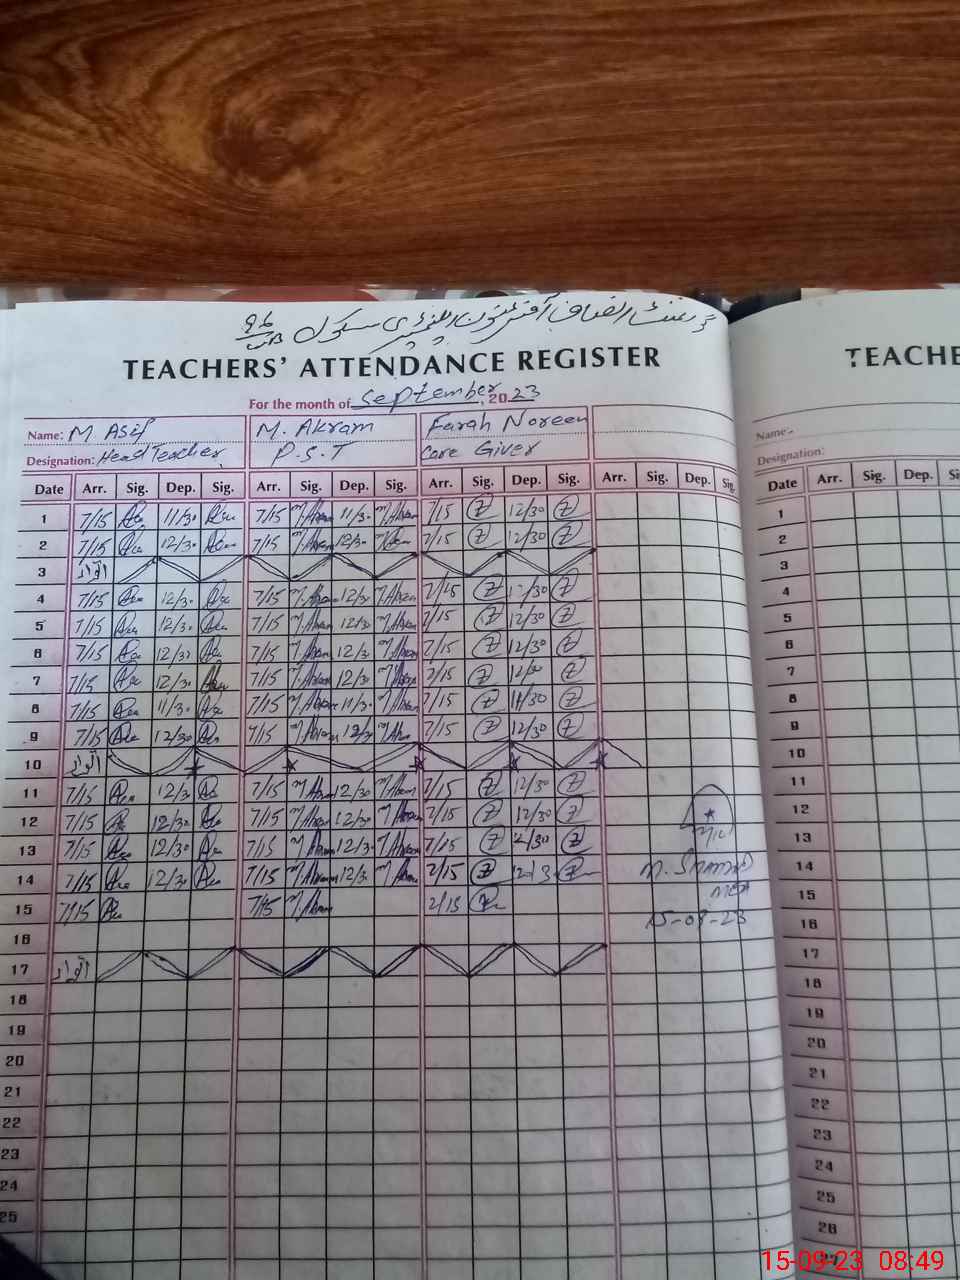 گورنمنٹ الصاف آفٹرنون ایلیمنٹری سکول
TEACHERS' ATTENDANCE REGISTER
For the month of September 2023
Name: M Asif M. Akram Farah Noreen
Designation: Head Teacher P.S.T Care Giver
Date Arr. Sig. Dep. Sig. Arr. Sig. Dep. Sig. Arr. Sig. Dep. Sig. Arr. Sig. Dep. Sig.
1 7/15 11/30 7/15 M.Akram 11/30 M.Akram 7/15 12/30
2 7/15 12/30 7/15 M.Akram 12/30 7/15 12/30
3 اتوار
4 7/15 12/30 7/15 M.Akram 12/30 M.Akram 7/15 12/30
5 7/15 12/30 7/15 M.Akram 12/30 M.Akram 7/15 12/30
6 7/15 12/30 7/15 M.Akram 12/30 M.Akram 7/15 12/30
7 7/15 12/30 7/15 M.Akram 12/30 M.Akram 7/15 12/30
8 7/15 11/30 7/15 M.Akram 11/30 M.Akram 7/15 11/30
9 7/15 12/30 7/15 M.Akram 12/30 M.Akram 7/15 12/30
10 اتوار
11 7/15 12/30 7/15 M.Akram 12/30 M.Akram 7/15 12/30
12 7/15 12/30 7/15 M.Akram 12/30 M.Akram 7/15 12/30
13 7/15 12/30 7/15 M.Akram 12/30 M.Akram 7/15 12/30
14 7/15 12/30 7/15 M.Akram 12/30 M.Akram 7/15 12/30
15 7/15 7/15 M.Akram 7/15
15-08-23
16
17 اتوار
18
19
20
21
22
23
24
25
TEACHE
Name-
Designation:
Date Arr. Sig. Dep.
1
2
3
4
5
6
7
8
9
10
11
12
13
14
15
16
17
18
19
20
21
22
23
24
25
26
27
15-09-23 08:49